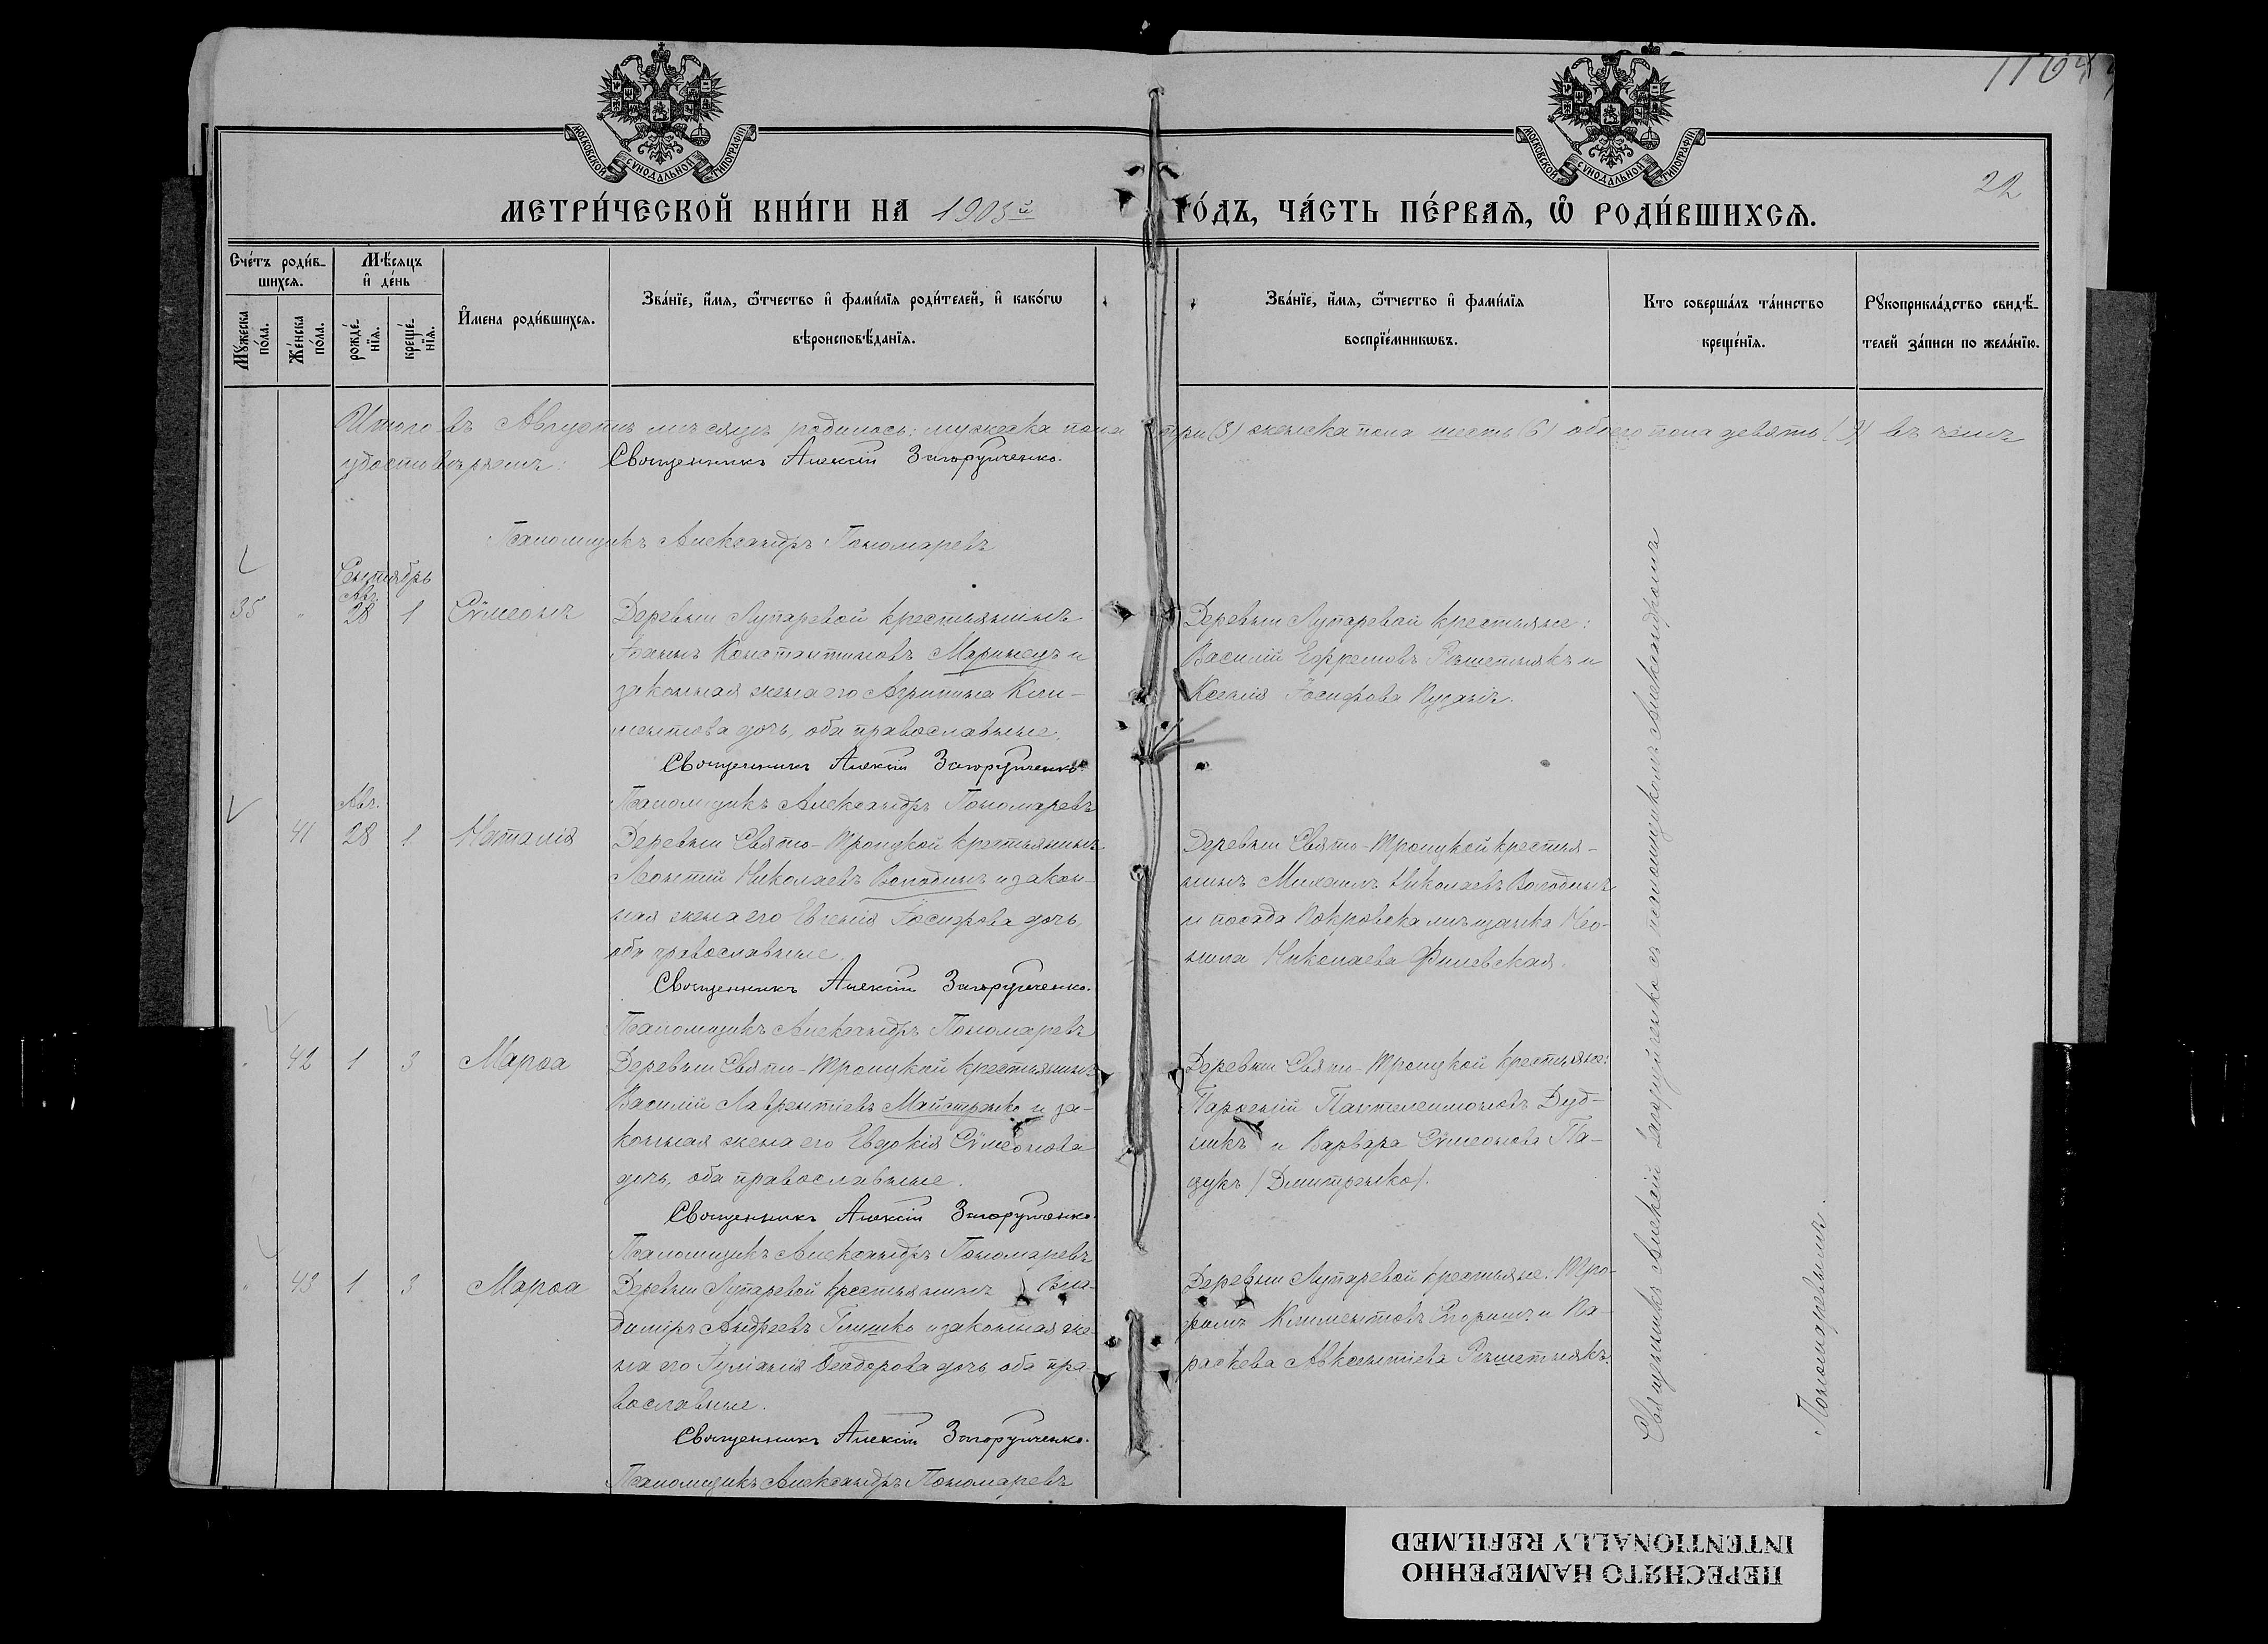 1164
22
МОСКОВСКОЙ СѴНОДАЛЬНОЙ ТИПОГРАФІИ
МОСКОВСКОЙ СѴНОДАЛЬНОЙ ТИПОГРАФІИ
МЕТРИ́ЧЕСКОЙ КНИ́ГИ НА 1903й ГО́ДЪ, ЧА́СТЬ ПЕ́РВАЯ, Ѿ РОДИ́ВШИХСЯ.
Сче́тъ роди́в-
шихся.
Мꙋ́жеска по́ла.
Же́нска по́ла.
Мѣ́сяцъ
и҆ де́нь
рожде́-
нїя.
креще́-
нїя.
И҆мена роди́вшихся.
Зва́нїе, и҆́мя, ѻ҆́тчество и҆ фами́лїя роди́телей, и҆ како́гѡ
вѣроисповѣ́данїя.
Зва́нїе, и҆́мя, ѻ҆́тчество и҆ фами́лїя
воспрїе́мникѡвъ.
Кто совершалъ та́инство
креще́нїя.
Рꙋкоприкла́дство свидѣ́-
телей за́писи по жела́нїю.
Итого въ Августѣ мѣсяцѣ родилось: мужеска пола три (3) женска пола шесть (6) обоего пола девять (9) въ чемъ
удостовѣряемъ: Священникъ Алексій Загоруйченко.
Псаломщикъ Александръ Пономаревъ
Сентябрь
Авг.
35 " 28 1 Сѵмеонъ
Деревни Лупаревой крестьянинъ
Іоаннъ Константиновъ Маринецъ и
законная жена его Агрипина Кли-
ментова дочь, оба православные.
Священникъ Алексій Загоруйченко.
Псаломщикъ Александръ Пономаревъ
Деревни Лупаревой крестьяне:
Василій Ефремовъ Решетнякъ и
Ксенія Іосифова Пузынь.
Авг.
41 28 1 Наталія
Деревни Свято-Троицкой крестьянинъ
Леонтій Николаевъ Володинъ и закон-
ная жена его Евгенія Іосифова дочь,
оба православные.
Священникъ Алексій Загоруйченко.
Псаломщикъ Александръ Пономаревъ
Деревни Свято-Троицкой крестья-
нинъ Михаилъ Николаевъ Володинъ
и посада Покровска мѣщанка Нео-
нила Николаева Филевская.
" 42 1 3 Марѳа
Деревни Свято-Троицкой крестьянинъ
Василій Лаврентіевъ Майстренко и за-
конная жена его Евдокія Сѵмеонова
дочь, оба православные.
Священникъ Алексій Загоруйченко.
Псаломщикъ Александръ Пономаревъ
Деревни Свято-Троицкой крестьяне:
Парѳеній Пантелеимоновъ Дуд-
никъ и Варвара Сѵмеонова Па-
цукъ (Дмитренко).
" 43 1 3 Марѳа
Деревни Лупаревой крестьянинъ Вла-
диміръ Андреевъ Глушко и законная же-
на его Іуліанія Ѳеодорова дочь, оба пра-
вославные.
Священникъ Алексій Загоруйченко.
Псаломщикъ Александръ Пономаревъ
Деревни Лупаревой крестьяне: Тро-
фимъ Климентовъ и Па-
раскева Авксентіева Решетнякъ.
Священникъ Алексій Загоруйченко съ псаломщикомъ Александромъ
Пономаревымъ.
ПЕРЕСНЯТО НАМЕРЕННО
INTENTIONALLY REFILMED